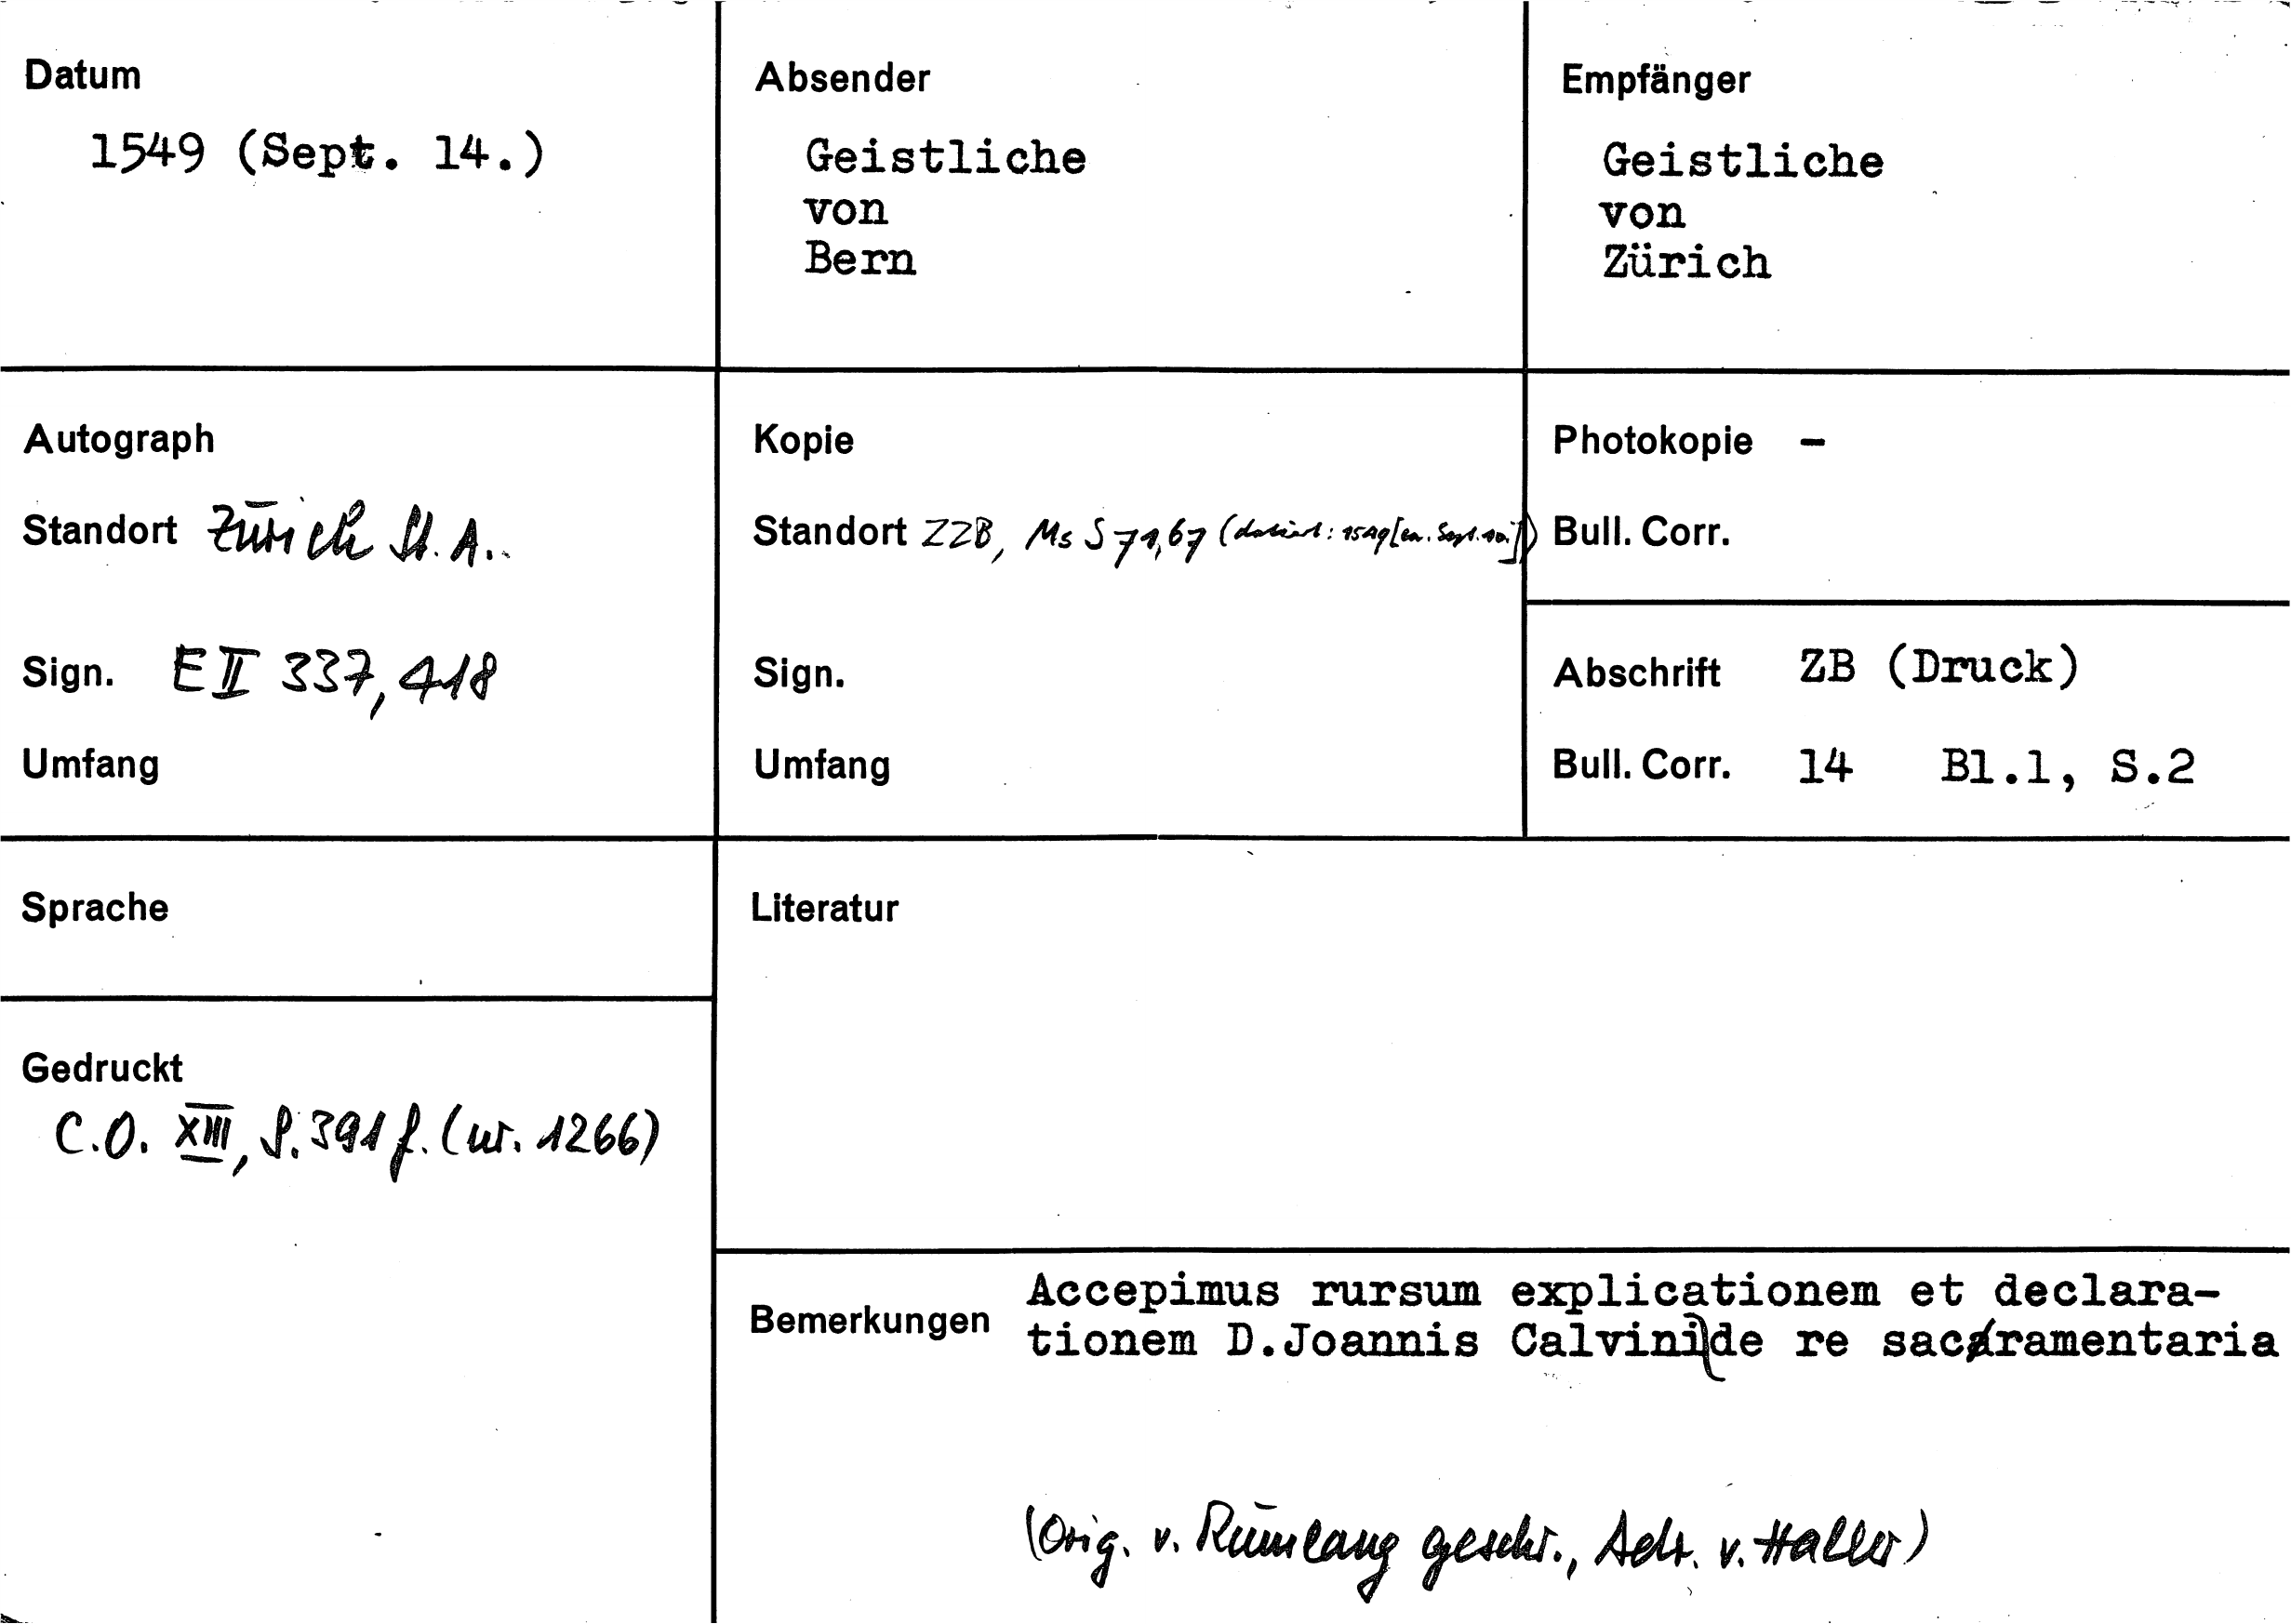 Datum
1549 (Sept. 14.)
Absender
Geistliche
von
Bern
Empfänger
Geistliche
von
Zürich
Autograph
Standort Zürich St. A.
Sign. E II 337, 418
Umfang
Kopie
Standort ZZB, Ms S 71,67 (datiert: 1549 [ca. Sept. 10.])
Sign.
Umfang
Photokopie –
Bull. Corr.
Abschrift ZB (Druck)
Bull. Corr. 14 Bl.1, S.2
Sprache
Gedruckt
C.O. XIII, S. 391 f. (nr. 1266)
Literatur
Bemerkungen
Accepimus rursum explicationem et declara-
tionem D.Joannis Calvini de re sacramentaria
(Orig. v. Rümlang geschr., Adr. v. Haller)